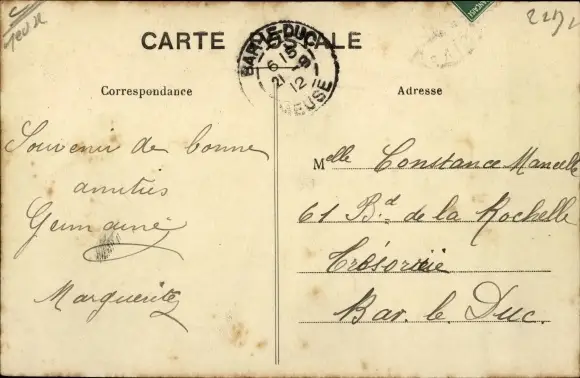 CARTE POSTALE
BAR-LE-DUC
6 15
21 - 9
12
MEUSE
Correspondance
Souvenir de bonne
amitiés
Germaine
Marguerite
Adresse
Melle Constance Mancelle
61 Bd de la Rochelle
Trésorerie
Bar. le. Duc.